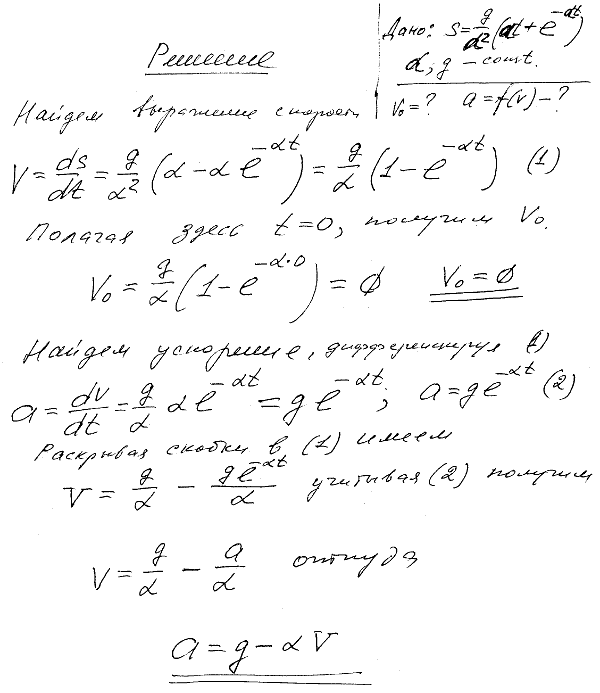 Решение
Дано: S=g/α²(αt+e^{-αt})
α, g – const.
V₀=? a=f(v)–?
Найдем выражение скорости
V=ds/dt=g/α²(α-αe^{-αt})=g/α(1-e^{-αt}) (1)
Полагая здесь t=0, получим V₀.
V₀=g/α(1-e^{-α·0})=0 V₀=0
Найдем ускорение, дифференцируя (1)
a=dv/dt=g/α αe^{-αt}=ge^{-αt}; a=ge^{-αt} (2)
Раскрывая скобки в (1) имеем
V=g/α-ge^{-αt}/α учитывая (2) получим
V=g/α-a/α откуда
a=g-αV